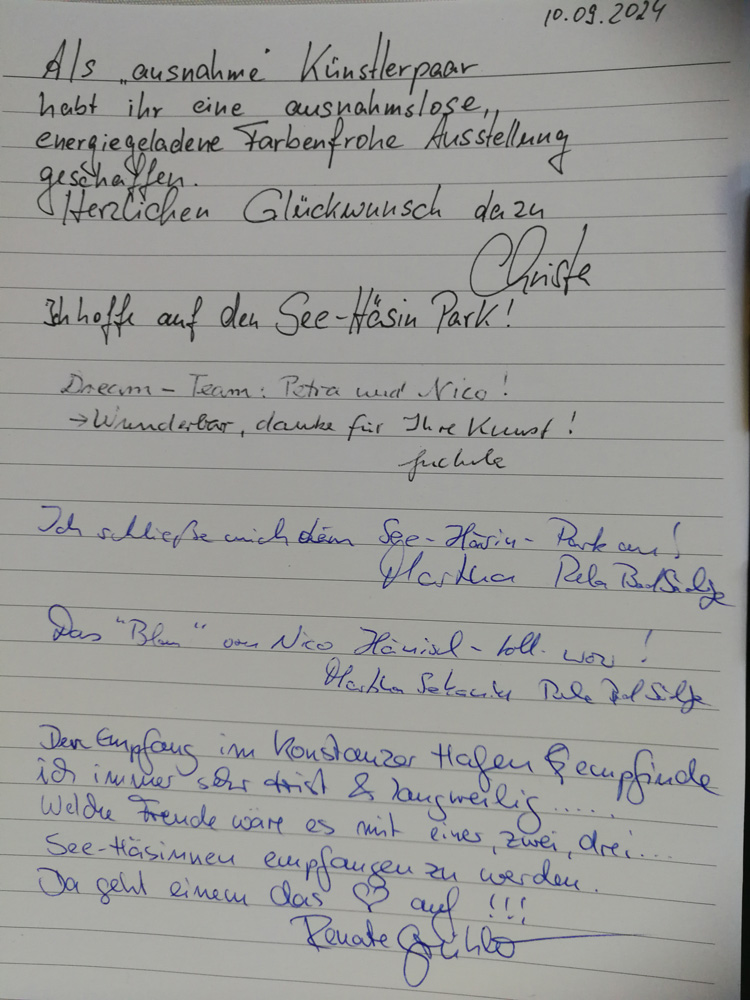 10.09.2024
Als „ausnahme" Künstlerpaar
habt ihr eine ausnahmslose,,
energiegeladene Farbenfrohe Ausstellung
geschaffen.
Herzlichen Glückwunsch dazu
Christa
Ich hoffe auf den See-Häsin Park!
Dream-Team: Petra und Nico!
→ Wunderbar, danke für Ihre Kunst!
Ich schließe mich dem See-Häsin-Park an!
Martha
Das "Blau" von Nico Hänisch - toll. wow!
Martha
Den Empfang im Konstanzer Hafen empfinde
ich immer sehr trist & langweilig.....
Welche Freude wäre es mit einer, zwei, drei...
See-Häsinnen empfangen zu werden.
Da geht einem das ♡ auf !!!
Renate